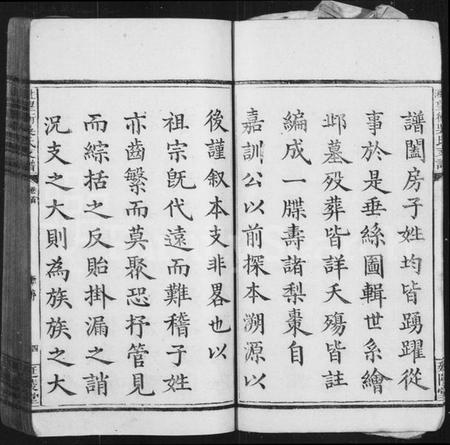 譜闔房子姓均皆踴躍從
事於是垂絲圖輯世系繪
邱墓歿葬皆詳夭殤皆註
編成一牒壽諸梨棗自
嘉訓公以前探本溯源以
後謹叙本支非畧也以
祖宗旣代遠而難稽子姓
亦齒繁而莫聚恐抒管見
而綜括之反貽掛漏之誚
況支之大則為族族之大
四